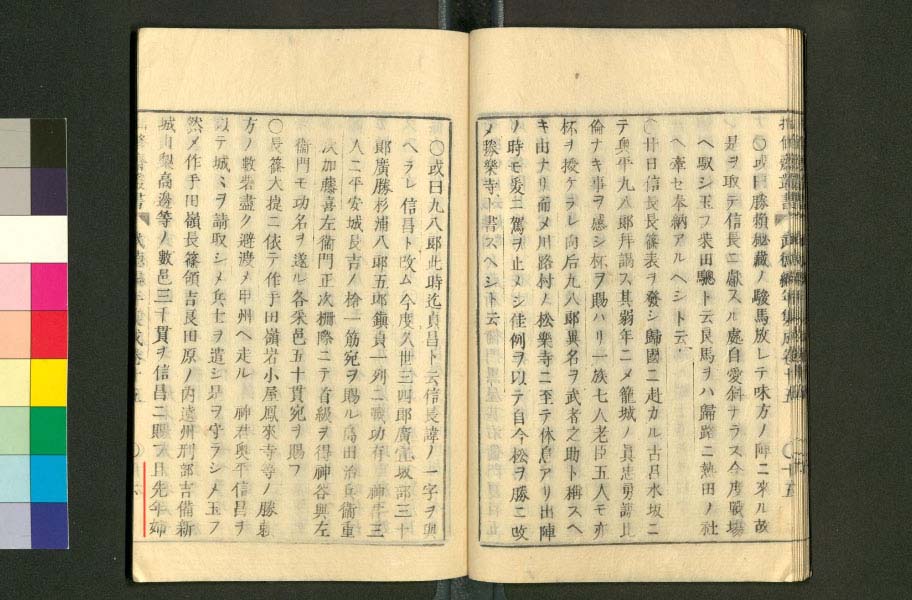 〇或曰勝頼秘蔵ノ駿馬放レテ味方ノ陣ニ来ル故
是ヲ取テ信長ニ獻スル處自愛斜ナラス今度戰場
ヘ馭シ玉フ柴田驄ト云良馬ヲハ歸路ニ熱田ノ社
ヘ牽セ奉納アルヘシト云
〇廿日信長長篠表ヲ發シ歸國ニ赴カル古呂水坂ニ
テ奥平九八郎拜謁ス其弱年ニメ籠城ノ貞忠勇謀比
倫ナキ事ヲ感シ杯ヲ賜ハリ一族七人老臣五人モ亦
杯ヲ授ケラレ向后九八郎異名ヲ武者之助ト稱スヘ
キ由ナリ而メ川路村ノ松樂寺ニ至テ休息アリ出陣
ノ時モ爰ニ駕ヲ止メシ佳例ヲ以テ自今松ヲ勝ニ改
メ勝樂寺ト書スヘシト云
〇或曰九八郎此時迄貞昌ト云信長諱ノ一字ヲ與
ヘラレ信昌ト改ム今度久世三四郎廣宣坂部三十
郎廣勝杉浦八郎五郎鎭貞一列ニ戰功存 神君三
人ニ平安城長吉ノ槍一筋宛ヲ賜ル高田治兵衞重
次加藤喜左衞門正次柵際ニテ首級ヲ得神谷與左
衞門モ功名ヲ遂ル各采邑五十貫宛ヲ賜フ
〇長篠大捷ニ依テ作手田嶺岩小屋鳳來寺等ノ勝頼
方ノ數砦盡ク避渡メ甲州ヘ走ル 神君奥平信昌ヲ
以テ城々ヲ請取シメ兵士ヲ遣シ是ヲ守ラシメ玉フ
然メ作手田嶺長篠領吉良田原ノ内遠州刑部吉備新
城山梨高邊等ノ數邑三千貫ヲ信昌ニ賜フ且先年姉